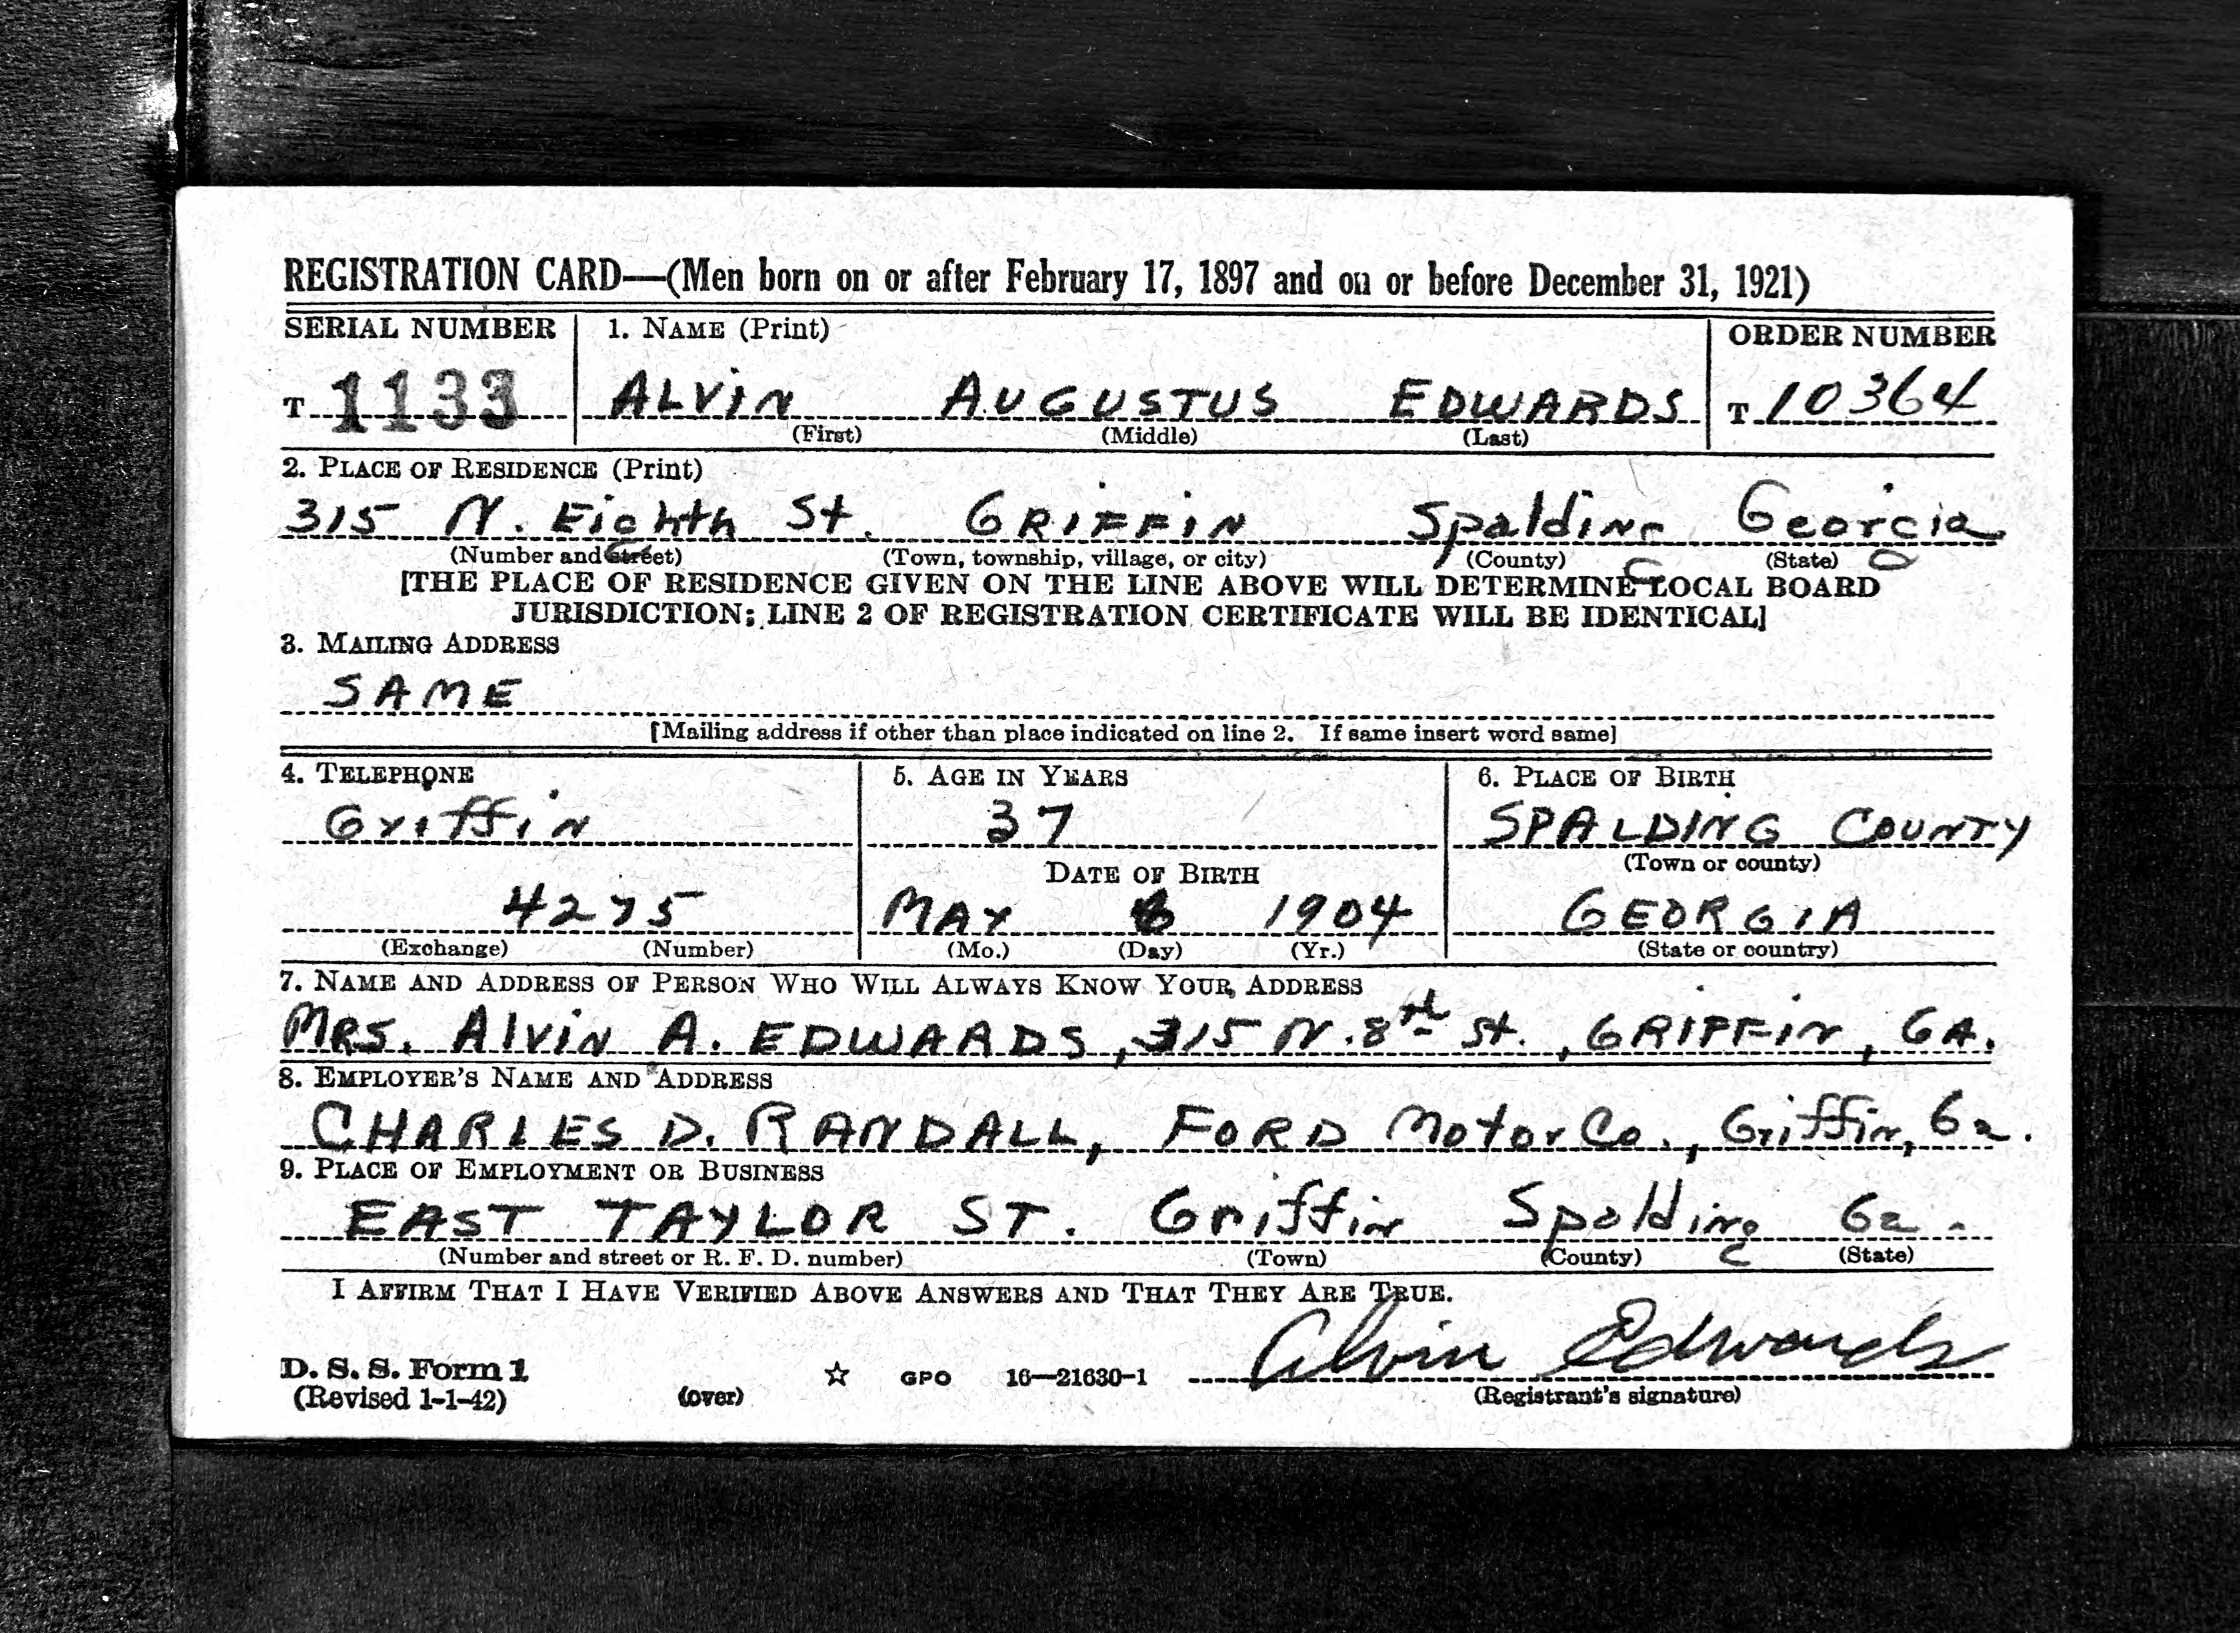 REGISTRATION CARD—(Men born on or after February 17, 1897 and on or before December 31, 1921)
SERIAL NUMBER 1. NAME (Print) ORDER NUMBER
T 1133 ALVIN AUGUSTUS EDWARDS T 10364
(First) (Middle) (Last)
2. PLACE OF RESIDENCE (Print)
315 N. Eighth St. GRIFFIN Spalding Georgia
(Number and street) (Town, township, village, or city) (County) (State)
[THE PLACE OF RESIDENCE GIVEN ON THE LINE ABOVE WILL DETERMINE LOCAL BOARD
JURISDICTION; LINE 2 OF REGISTRATION CERTIFICATE WILL BE IDENTICAL]
3. MAILING ADDRESS
SAME
[Mailing address if other than place indicated on line 2. If same insert word same]
4. TELEPHONE 5. AGE IN YEARS 6. PLACE OF BIRTH
Griffin 37 SPALDING COUNTY
DATE OF BIRTH (Town or county)
4275 MAY 1904 GEORGIA
(Exchange) (Number) (Mo.) (Day) (Yr.) (State or country)
7. NAME AND ADDRESS OF PERSON WHO WILL ALWAYS KNOW YOUR ADDRESS
MRS. Alvin A. EDWARDS, 315 N. 8th St., GRIFFIN, GA.
8. EMPLOYER'S NAME AND ADDRESS
CHARLES D. RANDALL, FORD Motor Co., Griffin, Ga.
9. PLACE OF EMPLOYMENT OR BUSINESS
EAST TAYLOR ST. Griffin Spalding Ga.
(Number and street or R. F. D. number) (Town) (County) (State)
I AFFIRM THAT I HAVE VERIFIED ABOVE ANSWERS AND THAT THEY ARE TRUE.
Alvin Edwards
D. S. S. Form 1 ☆ GPO 16—21630-1
(Revised 1-1-42) (over) (Registrant's signature)